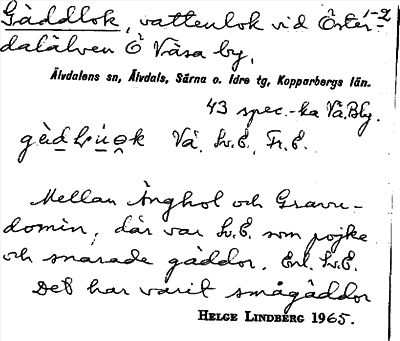 Gäddlok, vattenlok vid Öster- 1-2
dalälven Ö Våsa by.
Älvdalens sn, Älvdals, Särna o. Idre tg, Kopparbergs län.
43 spec.-ka Vå. Bly.
Vå. Lv.E., Fr.E.
Mellan Änghol och Gravu-
domin, där var Lv.E. som pojke
och snarade gäddor. Enl. Lv.E.
Det har varit smågäddor
HELGE LINDBERG 1965.